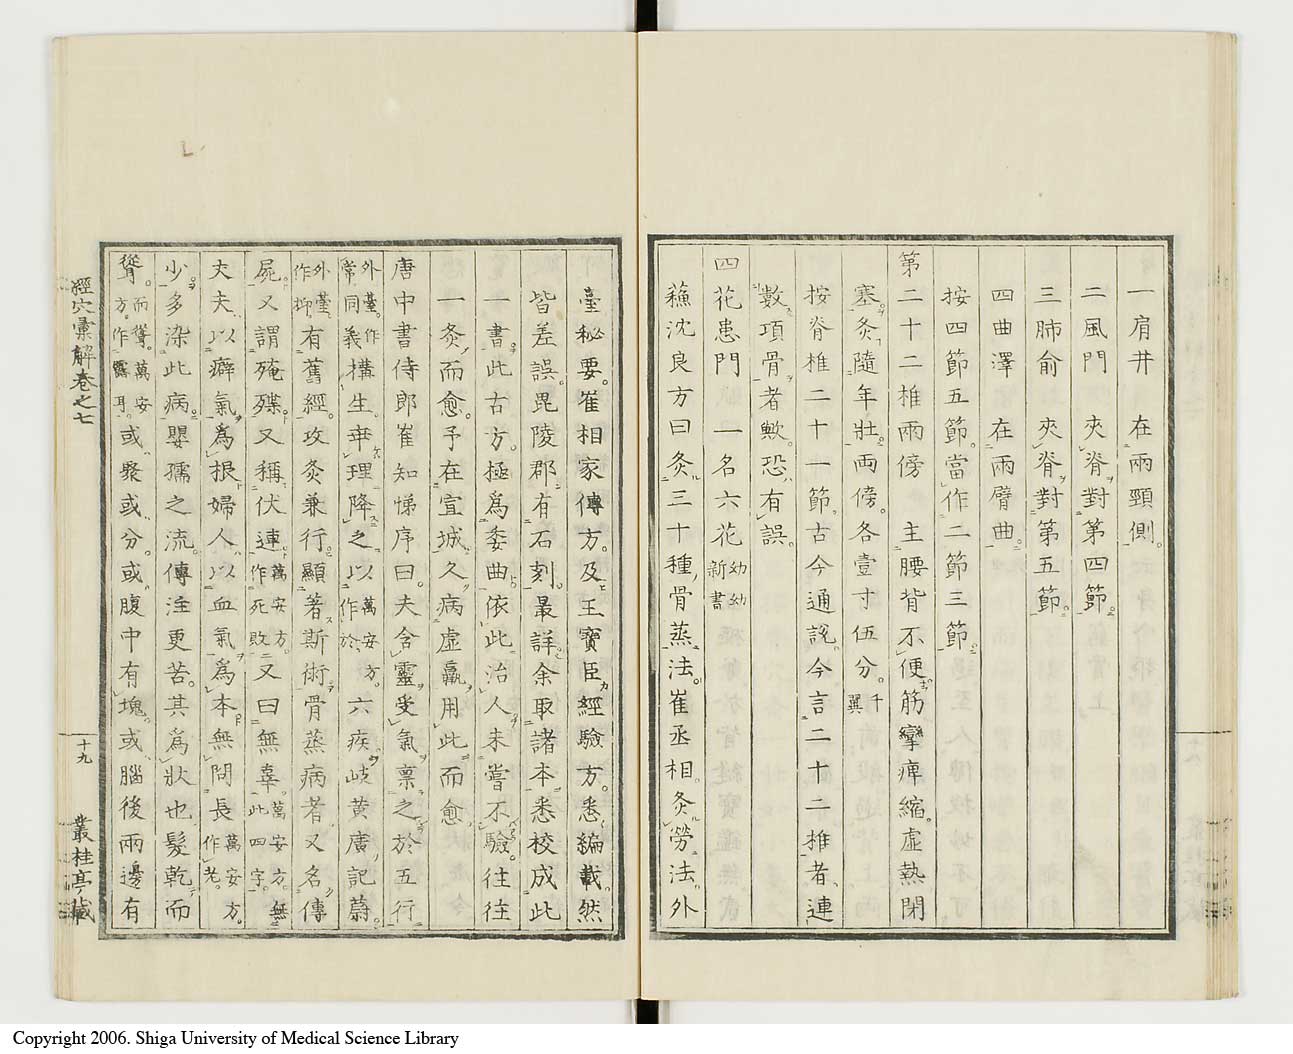 一肩井　在兩頸側。
二風門　夾脊對第四節。
三肺俞　夾脊對第五節。
四曲澤　在兩臂曲。
按四節五節。當作二節三節。
第二十二椎兩傍　主腰背不便。筋攣痺縮。虛熱閉
塞。灸隨年壯。兩傍。各壹寸伍分。千翼
按脊椎二十一節。古今通說。今言二十二椎者。連
數項骨者歟。恐有誤。
四花患門　一名六花　幼幼新書
蘓沈良方曰灸三十種骨蒸法。崔丞相。灸勞法。外
臺秘要。崔相家傳方。及王寶臣經驗方。悉編載。然
皆差誤。毘陵郡。有石刻。最詳。余取諸本。悉校成此
一書。此古方。極爲委曲。依此治人。未嘗不驗。往往
一灸而愈。予在宣城。久病虛羸。用此而愈
唐中書侍郎崔知悌序曰。夫含靈受氣。稟之於五行
外臺。作常同義。構生乖理。降之以萬安方。作於。六疾。岐黃廣記。蔚
外臺。作抑。有舊經。攻灸兼行。顯著斯術。骨蒸病者。又名傳
屍。又謂殗殜。又稱伏連。萬安方。作死敗。又曰無辜。萬安方。無此四字。
丈夫。以癖氣爲根。婦人。以血氣爲本。無問長萬安方。作老。
少。多染此病。嬰孺之流。傳注更苦。其爲狀也。髮乾而
聳。而聳。萬安方。作露耳。或聚或分。或腹中有塊。或腦後兩邊有
經穴彙解卷之七
十九
叢桂亭藏
Copyright 2006. Shiga University of Medical Science Library